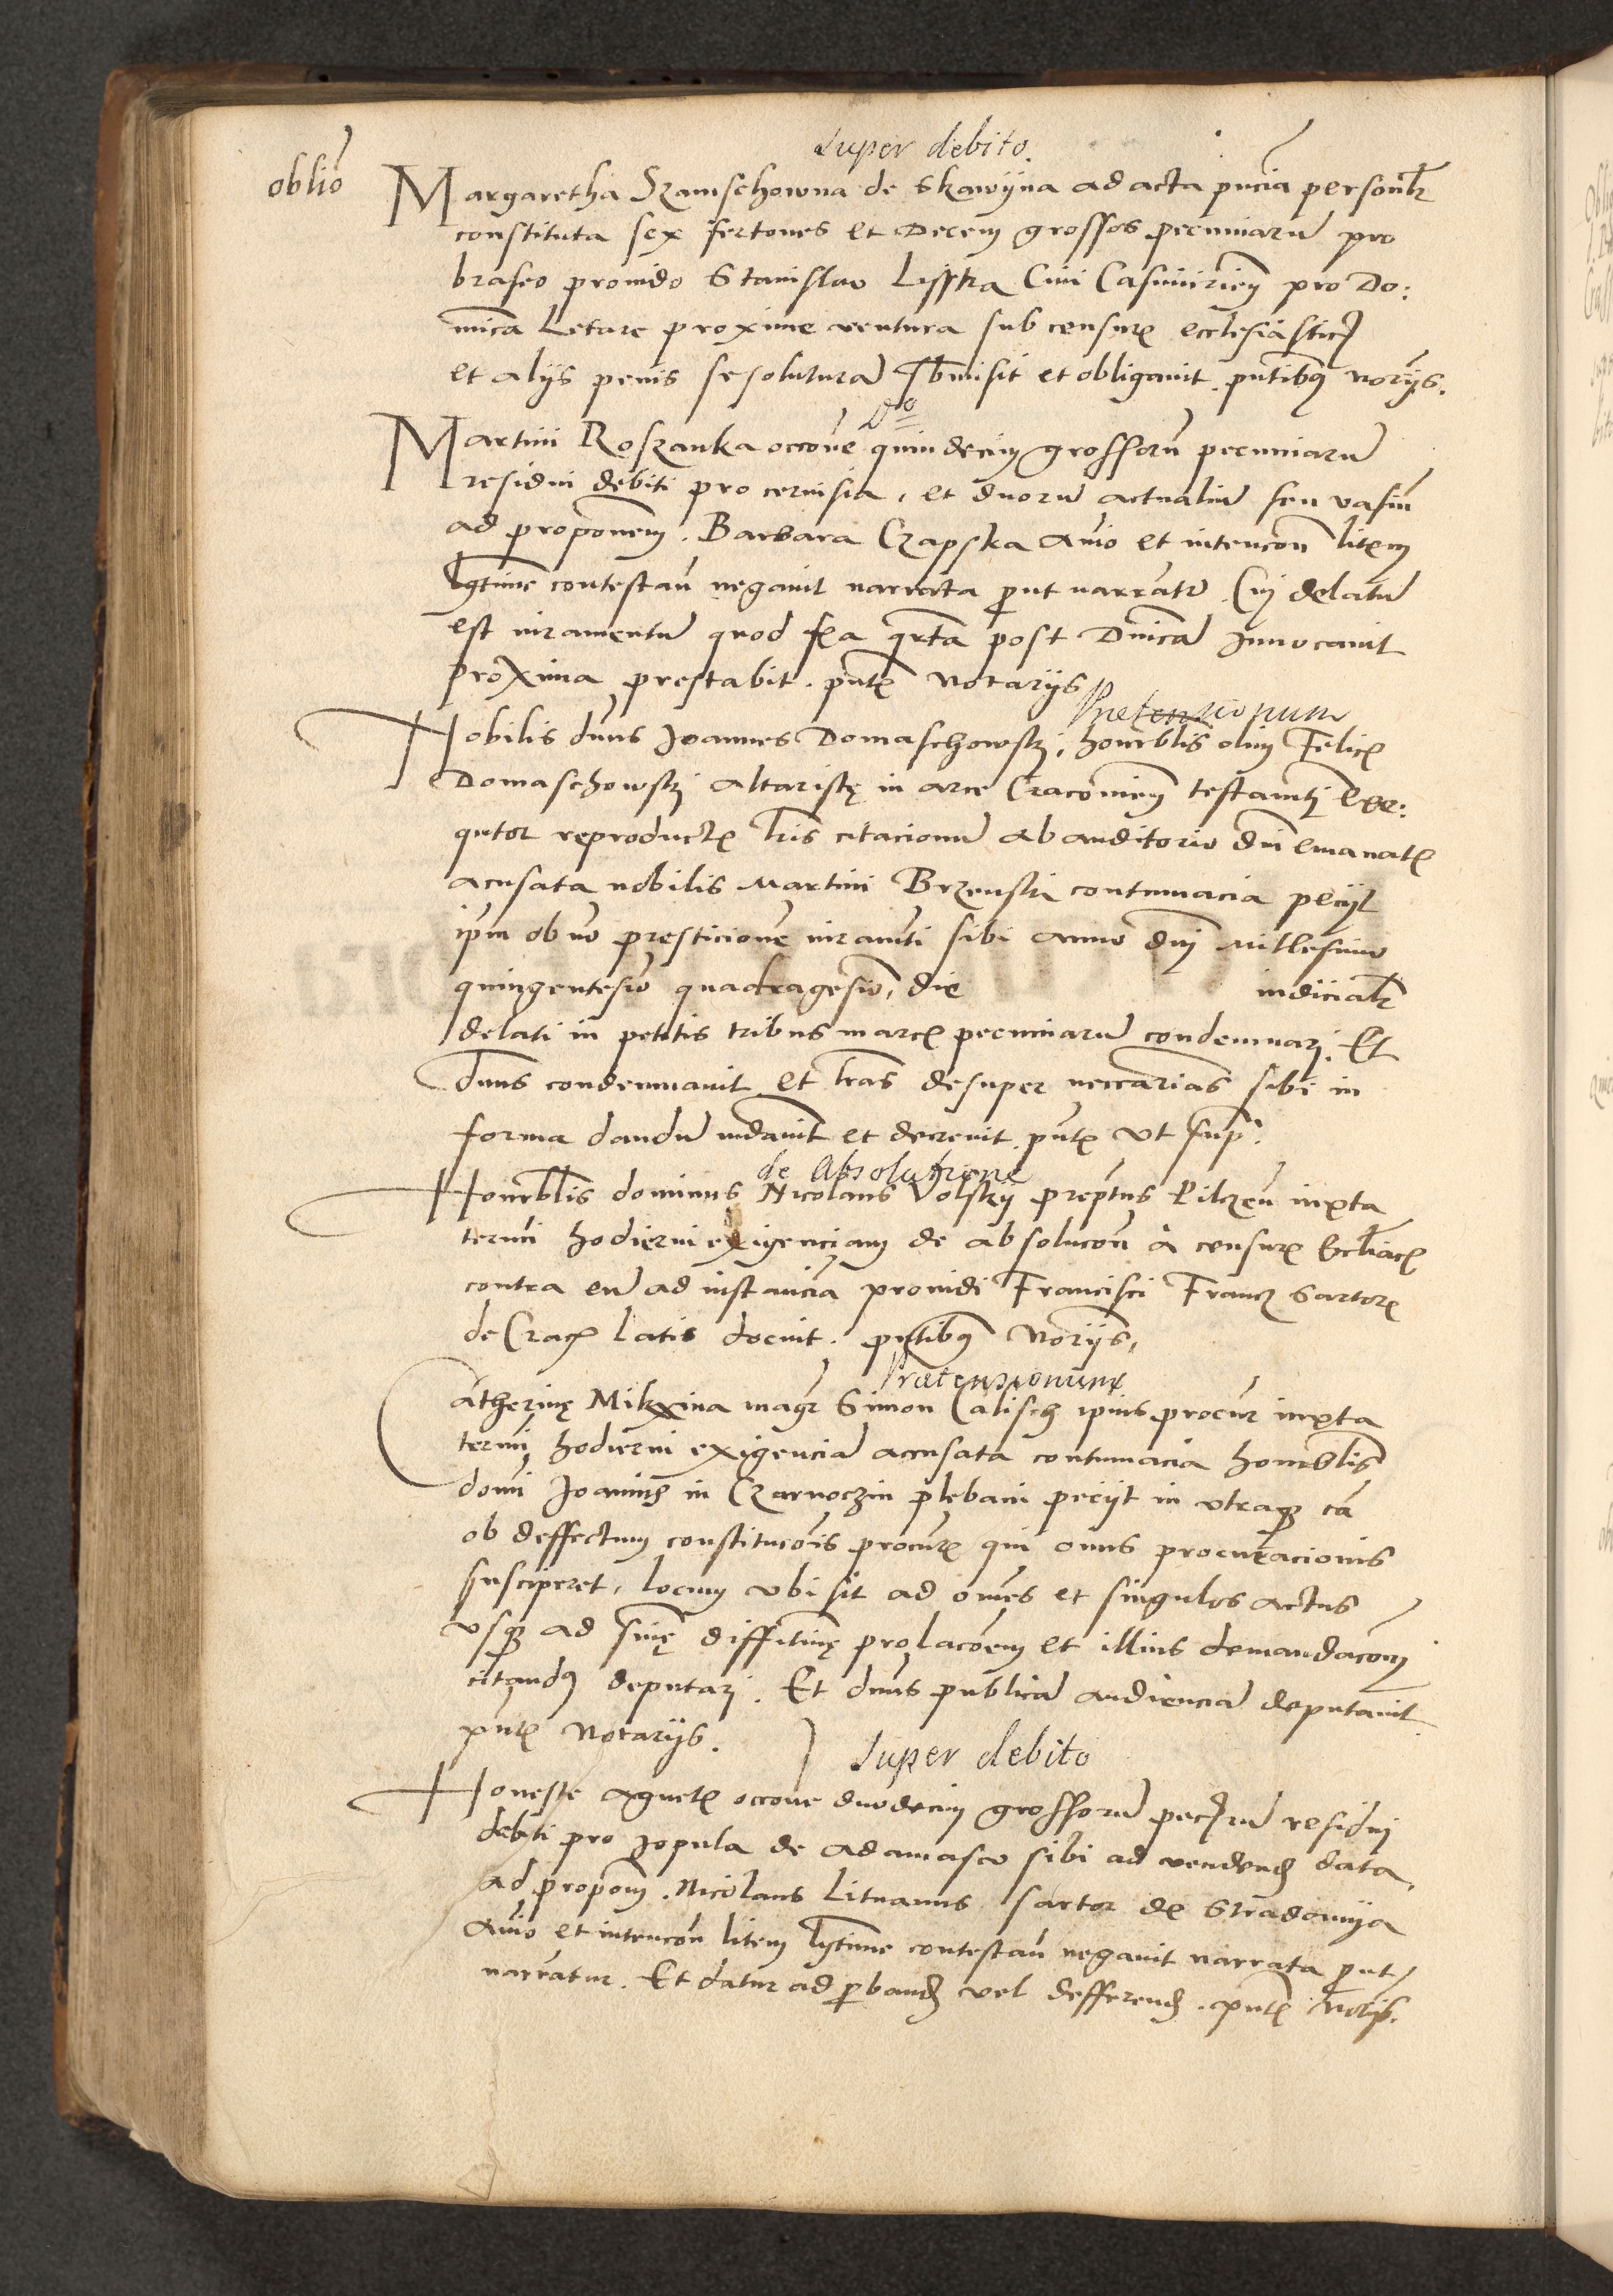 Super debito.
oblio
Margaretha Szamschowna de Skawyna ad acta pncia personlr
constituta sex fertones et decem grossos pecuniaru pro
braseo provido Stanislao Lisstka Civi Casimirien pro Do:
mica Letare proxime ventura sub censuris ecclesiasticis
et alys penis se soluturam sbmisit et obligavit. pntibus notys.
Do
Martini Roszanka occone quindecim grossoru pecuniaru
residui debiti pro cervisia, et duoru actualiu seu vasiu
ad proponem. Barbara Czapska aio et intencon litem
lytime contestan negavit narrata put narrantur. Cui delatu
est iuramentu quod fia qrta post Dnica Invocavit
proxima prestabit. pntibus Notarys
Pretensionum
Nobilis dnus Joannes Domaschowskj, honorblis olim Felicis
Domaschowskj altariste in arce Cracovien testamti exe:
qutor reproductis lris citacionu ab auditorio dni emanatis
acusata nobilis Martini Brzenski contumacia peciit
ipm ob no presticione iuramti sibi anno dni Millesimo
quingentesio quadragesio, die iudicialr
delati in petitis tribus marcis pecuniaru condemnari. Et
dnus condemnavit et lras desuper neccarias sibi in
forma dandu mdavit et decrevit pntibus ut supra.
de Absolutione
Honorblis dominus Nicolaus Volskij preptus Pilznen iuxta
termi hodierni exigenciam de absolucon a censuris Eccliacis
contra eu ad instancia providi Francisci Francz sartoris
de Crac latis docuit. pntibus Notys,
Pretensionum
Catherine Mikxina magr Simon Calisch ipius procur iuxta
termi hodierni exigencia accusata contumacia honorblis
domi Joannis in Czarnoczin plebani peciit in utraque ca
ob deffectum constitucois procuris qui onus procuracionis
susciperet, locum ubi sit ad omes et singulos actus
usque ad snie diffitive prolacoem et illius demandacom
citandus deputari. Et dnus publica audiencia deputavit
pntibus Notarys.
Super debito
Honeste Agnetis occone duodecim grossoru pecuniaru residui
debiti pro Jopula de adamasco sibi ad vendend data,
ad propom. Nicolaus Lituanus sartor de Stradomya
aio et intencon litem lytime contestan negavit narrata put
narratur. Et datur ad pband vel defferend. pntibus Notys.